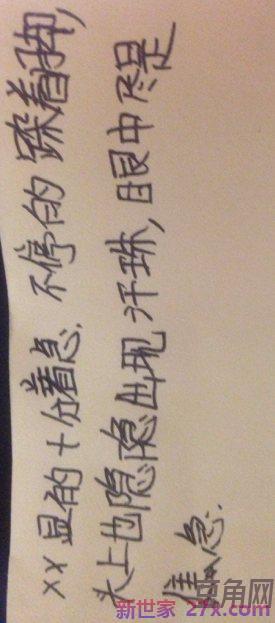 xx显的十分着急.不停的跺着脚,
头上也隐隐出现汗珠,眼中尽是
焦急.
京角网
新世家 27x.com